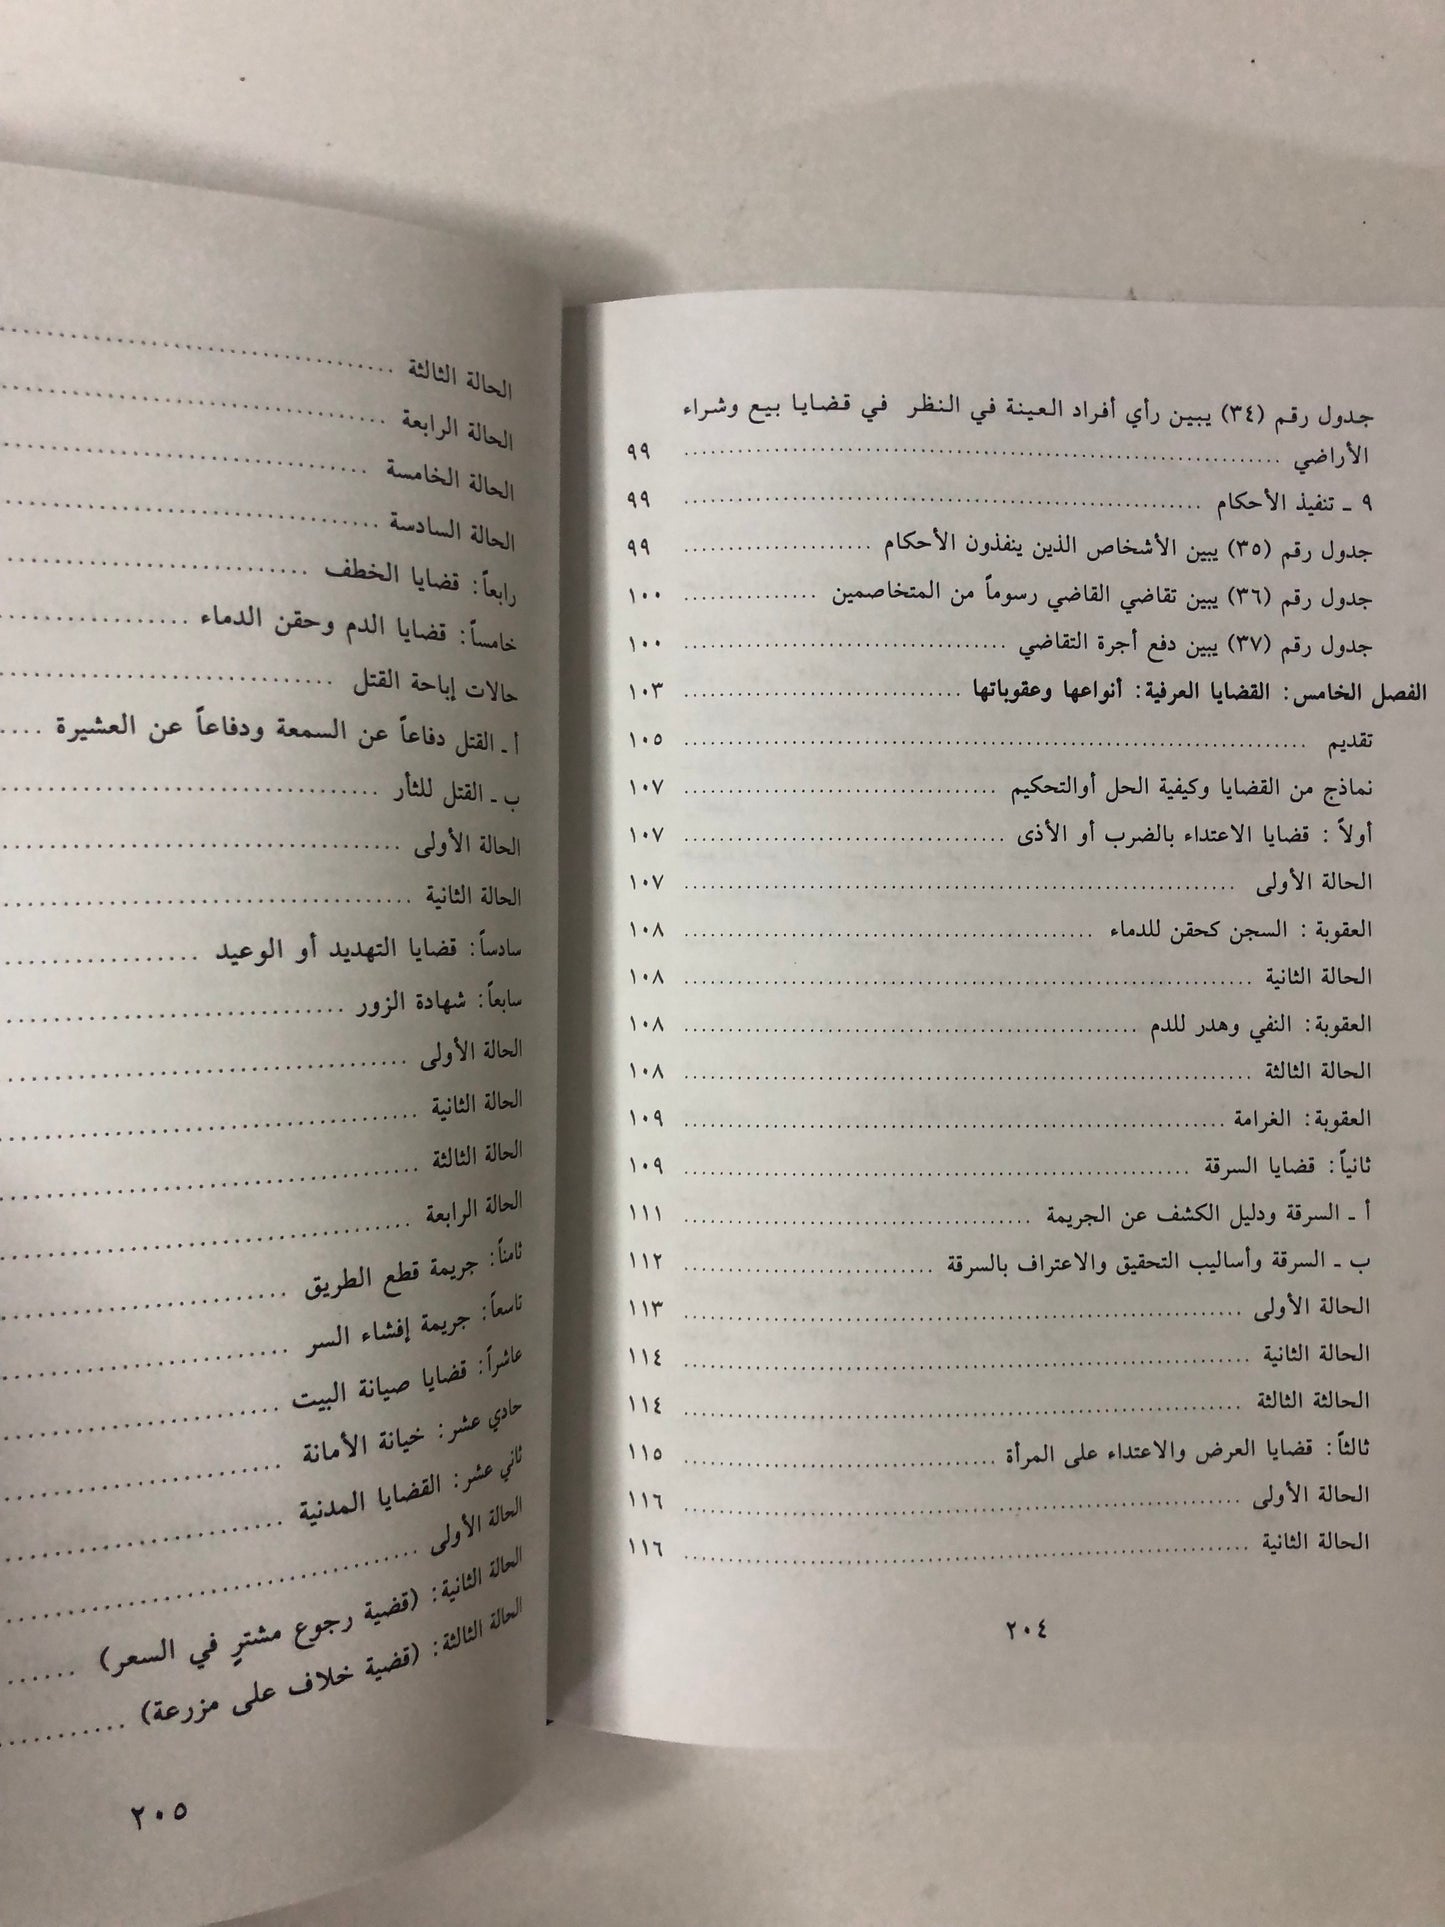 جدول رقم (٣٤) يبين رأي أفراد العينة في النظر في قضايا بيع وشراء
الأراضي ........ ٩٩
٩ ـ تنفيذ الأحكام ........ ٩٩
جدول رقم (٣٥) يبين الأشخاص الذين ينفذون الأحكام ........ ٩٩
جدول رقم (٣٦) يبين تقاضي القاضي رسوماً من المتخاصمين ........ ١٠٠
جدول رقم (٣٧) يبين دفع أجرة التقاضي ........ ١٠٠
الفصل الخامس: القضايا العرفية: أنواعها وعقوباتها ........ ١٠٣
تقديم ........ ١٠٥
نماذج من القضايا وكيفية الحل أوالتحكيم ........ ١٠٧
أولاً : قضايا الاعتداء بالضرب أو الأذى ........ ١٠٧
الحالة الأولى ........ ١٠٧
العقوبة : السجن كحقن للدماء ........ ١٠٨
الحالة الثانية ........ ١٠٨
العقوبة: النفي وهدر للدم ........ ١٠٨
الحالة الثالثة ........ ١٠٨
العقوبة: الغرامة ........ ١٠٩
ثانياً: قضايا السرقة ........ ١٠٩
أ ـ السرقة ودليل الكشف عن الجريمة ........ ١١١
ب ـ السرقة وأساليب التحقيق والاعتراف بالسرقة ........ ١١٢
الحالة الأولى ........ ١١٣
الحالة الثانية ........ ١١٤
الحالثة الثالثة ........ ١١٤
ثالثاً: قضايا العرض والاعتداء على المرأة ........ ١١٥
الحالة الأولى ........ ١١٦
الحالة الثانية ........ ١١٦
٢٠٤
الحالة الثالثة ........
الحالة الرابعة ........
الحالة الخامسة ........
الحالة السادسة ........
رابعاً: قضايا الخطف ........
خامساً: قضايا الدم وحقن الدماء ........
حالات إباحة القتل ........
أ ـ القتل دفاعاً عن السمعة ودفاعاً عن العشيرة ....
ب ـ القتل للثأر ........
الحالة الأولى ........
الحالة الثانية ........
سادساً: قضايا التهديد أو الوعيد ........
سابعاً: شهادة الزور ........
الحالة الأولى ........
الحالة الثانية ........
الحالة الثالثة ........
الحالة الرابعة ........
ثامناً: جريمة قطع الطريق ........
تاسعاً: جريمة إفشاء السر ........
عاشراً: قضايا صيانة البيت ........
حادي عشر: خيانة الأمانة ........
ثاني عشر: القضايا المدنية ........
الحالة الأولى ........
الحالة الثانية: (قضية رجوع مشترٍ في السعر) ......
الحالة الثالثة: (قضية خلاف على مزرعة) ........
٢٠٥